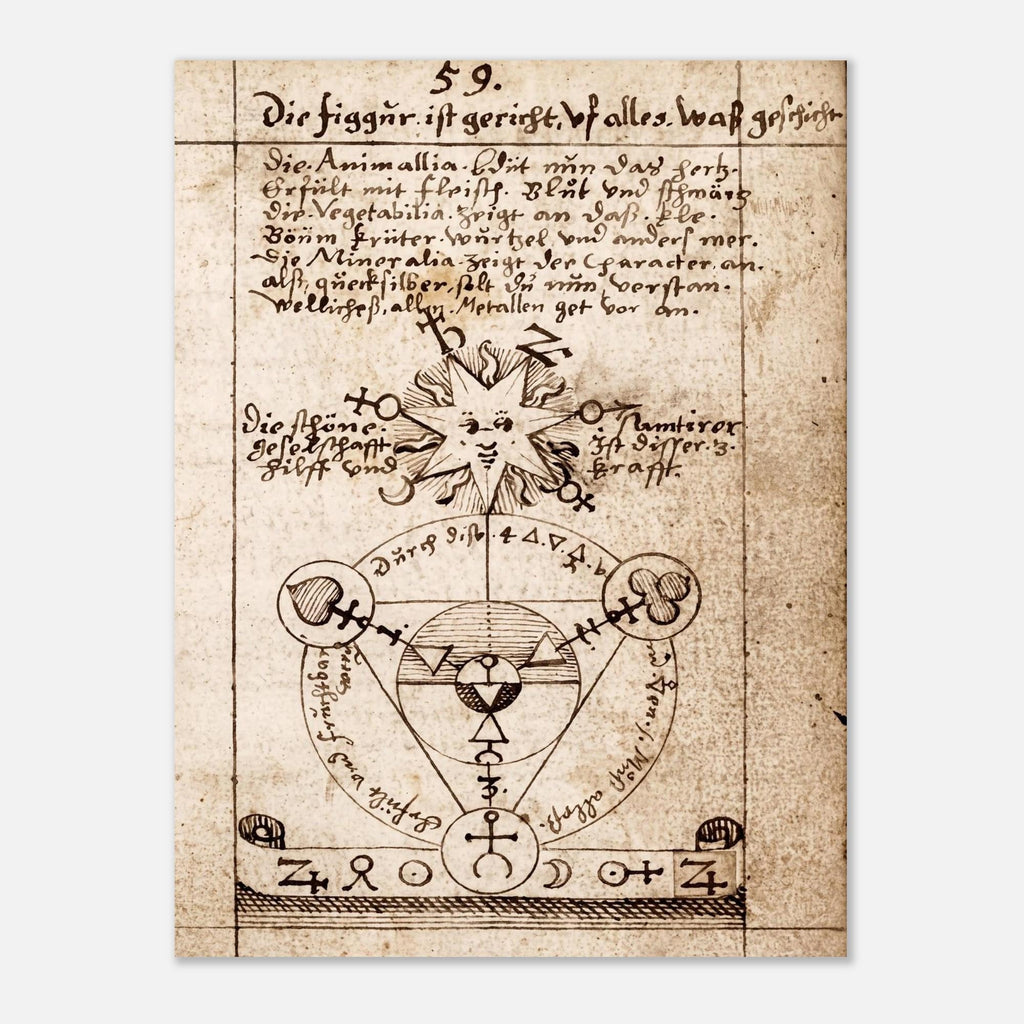 59.
Die figgůr. ist gericht, Vf alles. Waß geschicht
Die. Animallia. bdüt nůn das hertz.
Erfült mit fleisch. Blůt vnd schwärz
Die. Vegetabilia. Zeigt an daß. kle.
Böům krüter. wůrtzel, vnd anders mer.
Die Mineralia. Zeigt der Character, an.
alß, qůecksilber, solt dů nůn, verstan.
Wellicheß, allen. Metallen get vor an.
Die schöne.
geselschafft
hilfft vnd
Sumtiror
Ist disser. 3.
krafft.
Důrch diß. 4
1.
2.
3.
Von. 1. Můß alleß.
Erfült vnd